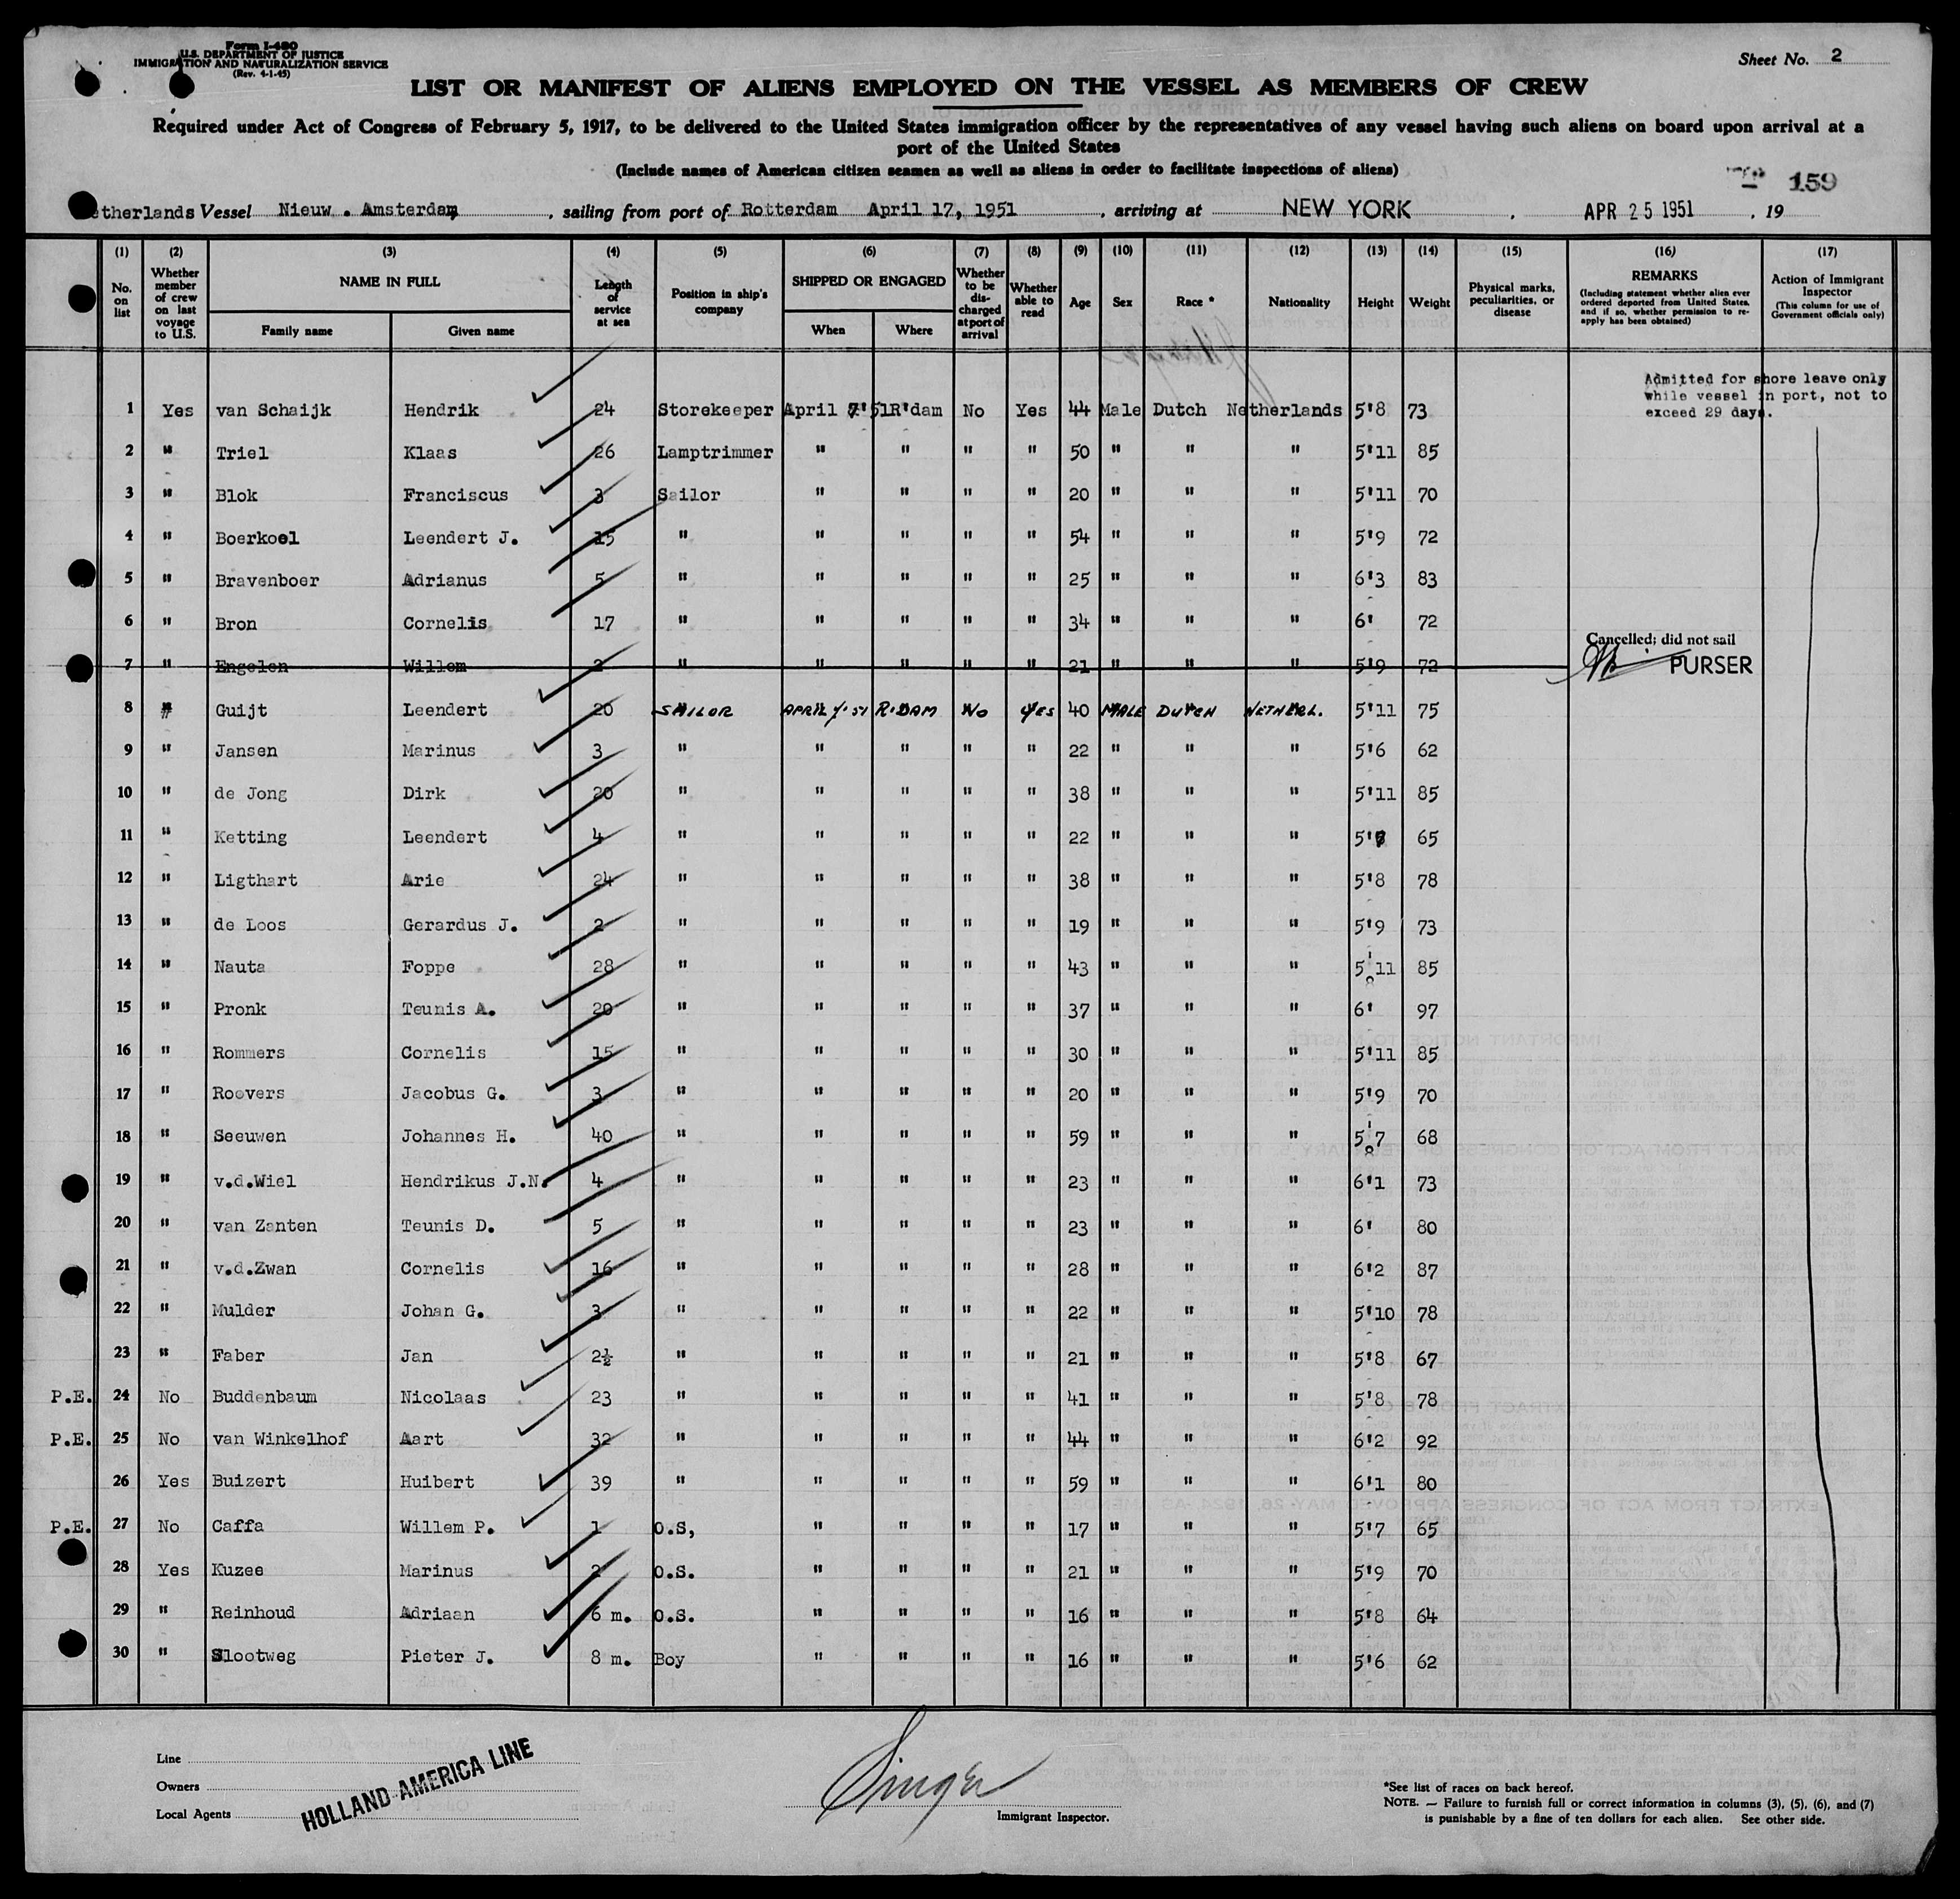 Form I-480
U.S. DEPARTMENT OF JUSTICE
IMMIGRATION AND NATURALIZATION SERVICE
(Rev. 4-1-45)
Sheet No. 2
LIST OR MANIFEST OF ALIENS EMPLOYED ON THE VESSEL AS MEMBERS OF CREW
Required under Act of Congress of February 5, 1917, to be delivered to the United States immigration officer by the representatives of any vessel having such aliens on board upon arrival at a
port of the United States
(Include names of American citizen seamen as well as aliens in order to facilitate inspections of aliens)
159
etherlands Vessel Nieuw. Amsterdam, sailing from port of Rotterdam April 17, 1951, arriving at NEW YORK, APR 25 1951, 19
(1) (2) (3) (4) (5) (6) (7) (8) (9) (10) (11) (12) (13) (14) (15) (16) (17)
No. on list
Whether member of crew on last voyage to U.S.
NAME IN FULL
Family name Given name
Length of service at sea
Position in ship's company
SHIPPED OR ENGAGED
When Where
Whether to be discharged at port of arrival
Whether able to read
Age
Sex
Race *
Nationality
Height
Weight
Physical marks, peculiarities, or disease
REMARKS
(Including statement whether alien ever ordered deported from United States, and if so, whether permission to re-apply has been obtained)
Action of Immigrant Inspector
(This column for use of Government officials only)
Admitted for shore leave only
while vessel in port, not to
exceed 29 days.
1 Yes van Schaijk Hendrik 24 Storekeeper April 7'51 R'dam No Yes 44 Male Dutch Netherlands 5'8 73
2 " Triel Klaas 26 Lamptrimmer " " " " 50 " " " 5'11 85
3 " Blok Franciscus 3 Sailor " " " " 20 " " " 5'11 70
4 " Boerkoel Leendert J. 15 " " " " " 54 " " " 5'9 72
5 " Bravenboer Adrianus 5 " " " " " 25 " " " 6'3 83
6 " Bron Cornelis 17 " " " " " 34 " " " 6' 72
Cancelled; did not sail
7 " Engelen Willem 2 " " " " " 21 " " " 5'9 72 PURSER
8 " Guijt Leendert 20 SAILOR APRIL 7'51 R'DAM No YES 40 MALE DUTCH NETHERL. 5'11 75
9 " Jansen Marinus 3 " " " " " 22 " " " 5'6 62
10 " de Jong Dirk 20 " " " " " 38 " " " 5'11 85
11 " Ketting Leendert 4 " " " " " 22 " " " 5' 65
12 " Ligthart Arie 24 " " " " " 38 " " " 5'8 78
13 " de Loos Gerardus J. 2 " " " " " 19 " " " 5'9 73
14 " Nauta Foppe 28 " " " " " 43 " " " 5'11 85
15 " Pronk Teunis A. 20 " " " " " 37 " " " 6' 97
16 " Rommers Cornelis 15 " " " " " 30 " " " 5'11 85
17 " Roovers Jacobus G. 3 " " " " " 20 " " " 5'9 70
18 " Seeuwen Johannes H. 40 " " " " " 59 " " " 5'7 68
19 " v.d.Wiel Hendrikus J.N. 4 " " " " " 23 " " " 6'1 73
20 " van Zanten Teunis D. 5 " " " " " 23 " " " 6' 80
21 " v.d.Zwan Cornelis 16 " " " " " 28 " " " 6'2 87
22 " Mulder Johan G. 3 " " " " " 22 " " " 5'10 78
23 " Faber Jan 2½ " " " " " 21 " " " 5'8 67
P.E. 24 No Buddenbaum Nicolaas 23 " " " " " 41 " " " 5'8 78
P.E. 25 No van Winkelhof Aart 32 " " " " " 44 " " " 6'2 92
26 Yes Buizert Huibert 39 " " " " " 59 " " " 6'1 80
P.E. 27 No Caffa Willem P. 1 O.S, " " " " 17 " " " 5'7 65
28 Yes Kuzee Marinus 2 O.S. " " " " 21 " " " 5'9 70
29 " Reinhoud Adriaan 6 m. O.S. " " " " 16 " " " 5'8 64
30 " Slootweg Pieter J. 8 m. Boy " " " " 16 " " " 5'6 62
Line
Owners
Local Agents
HOLLAND-AMERICA LINE
Singer
Immigrant Inspector.
*See list of races on back hereof.
NOTE. — Failure to furnish full or correct information in columns (3), (5), (6), and (7)
is punishable by a fine of ten dollars for each alien. See other side.